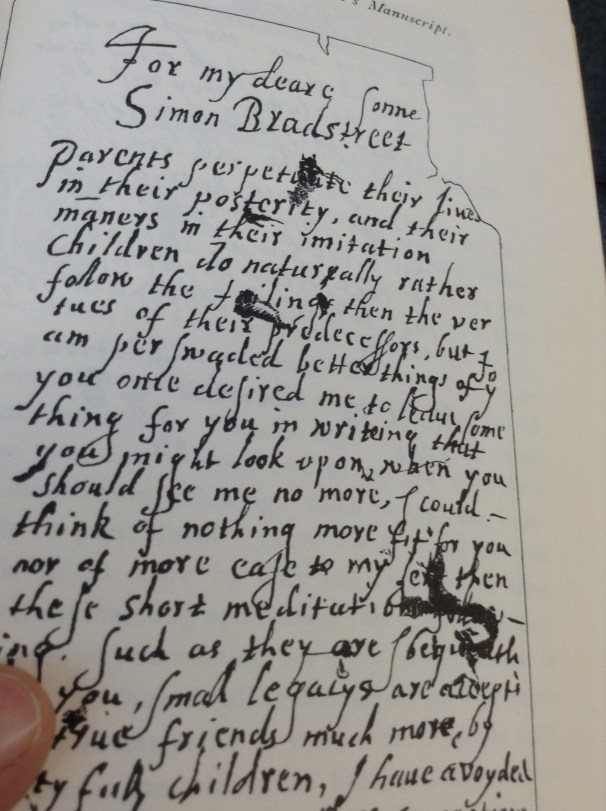 's Manuscript.
For my deare Sonne
Simon Bradstreet
Parents perpetuate their lines
in their posterity, and their
maners in their imitation
Children do naturally rather
follow the failings then the ver
tues of their predecessors, but I
am perswaded better things of y
you once desired me to leave some
thing for you in writeing that
you might look upon, when you
should see me no more, I could
think of nothing more fit for you
nor of more ease to my self then
these short meditations follow-
ing. Such as they are I bequeath
you, small legacys are accepti
true friends much more by
ty full children, I have avoyded